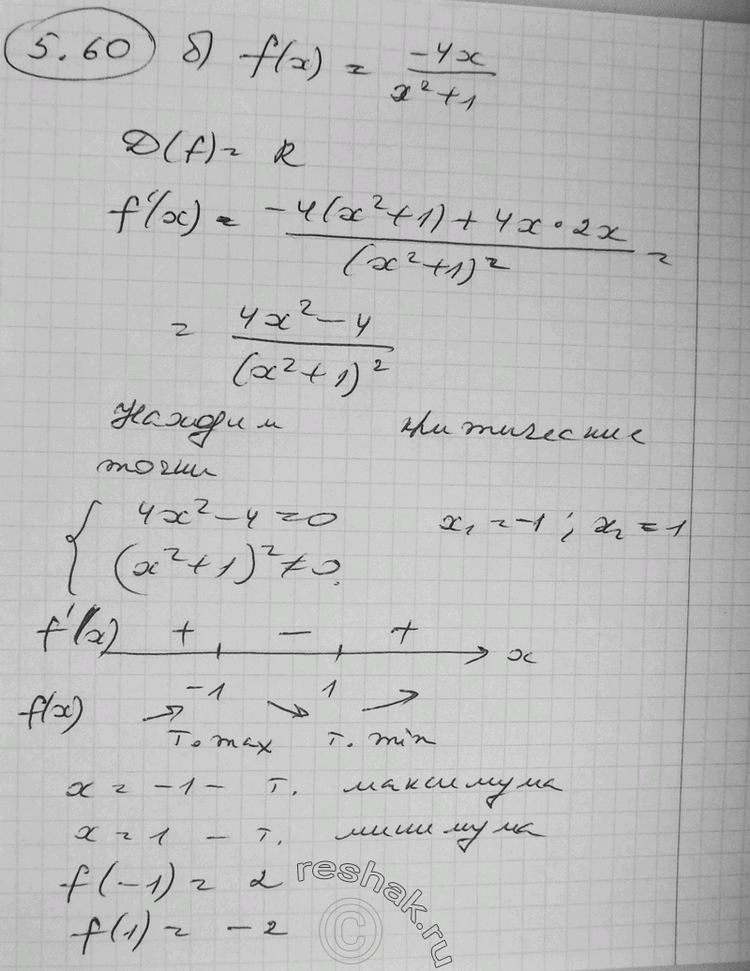 5.60 б) f(x) = -4x/(x²+1)
D(f) = R
f'(x) = (-4(x²+1) + 4x·2x)/(x²+1)² =
= (4x²-4)/(x²+1)²
Находим критические
точки
{ 4x²-4=0 x₁=-1; x₂=1
(x²+1)²≠0.
f'(x) + - + x
-1 1
f(x) ↗ ↘ ↗
т. max т. min
x = -1 - т. максимума
x = 1 - т. минимума
f(-1) = 2
f(1) = -2
reshak.ru
©